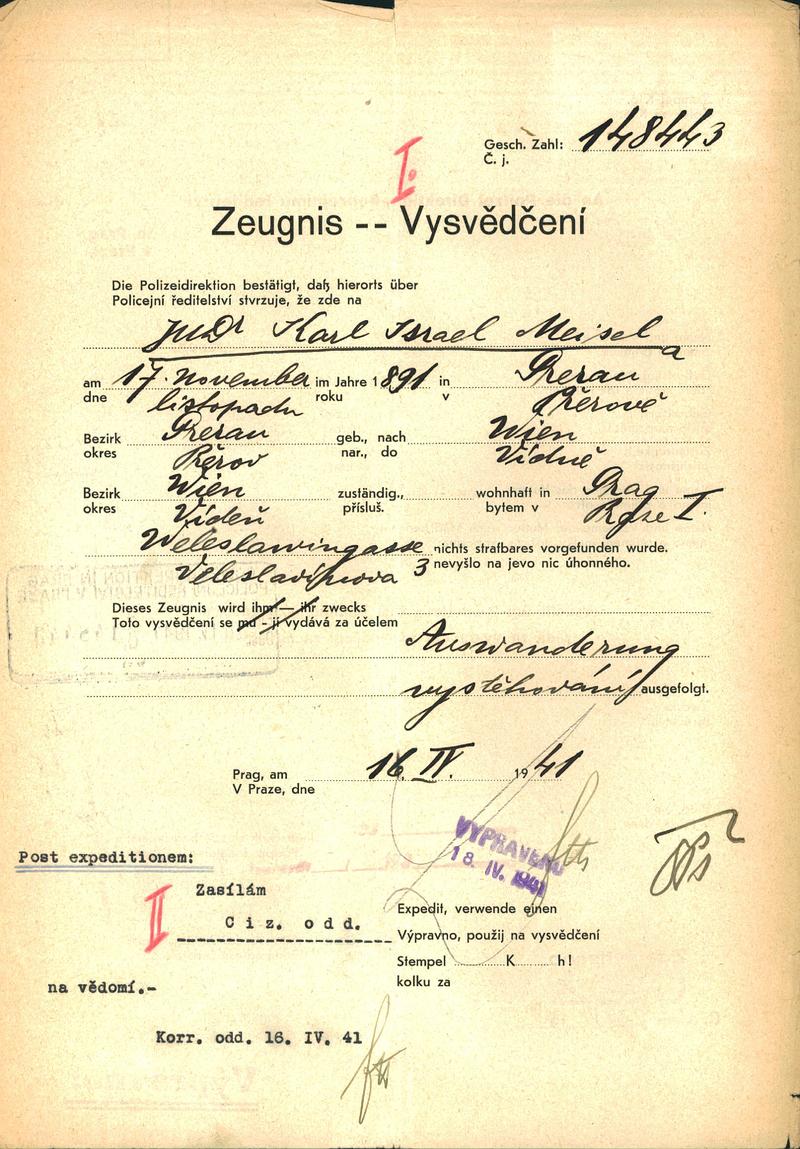 Gesch. Zahl: 148443
Č. j.
I.
Zeugnis -- Vysvědčení
Die Polizeidirektion bestätigt, daß hierorts über
Policejní ředitelství stvrzuje, že zde na
JUDr Karl Israel Meisel a
am 17. November im Jahre 1891 in Prerau
dne listopadu roku v Přerově
Bezirk Prerau geb., nach Wien
okres Přerov nar., do Vídně
Bezirk Wien zuständig., wohnhaft in Prag
okres Vídeň přísluš. bytem v Praze I.
Weleslawingasse nichts strafbares vorgefunden wurde.
Veleslavínova 3 nevyšlo na jevo nic úhonného.
Dieses Zeugnis wird ihm — ihr zwecks
Toto vysvědčení se mu - jí vydává za účelem
Auswanderung
vystěhování ausgefolgt.
Prag, am 16. IV. 1941
V Praze, dne
VYPRAVENO
18. IV. 1941
Post expeditionem:
Zasílám
II
Ciz. odd.
Expedit, verwende einen
Výpravno, použij na vysvědčení
Stempel K h!
kolku za
na vědomí.-
Korr. odd. 16. IV. 41